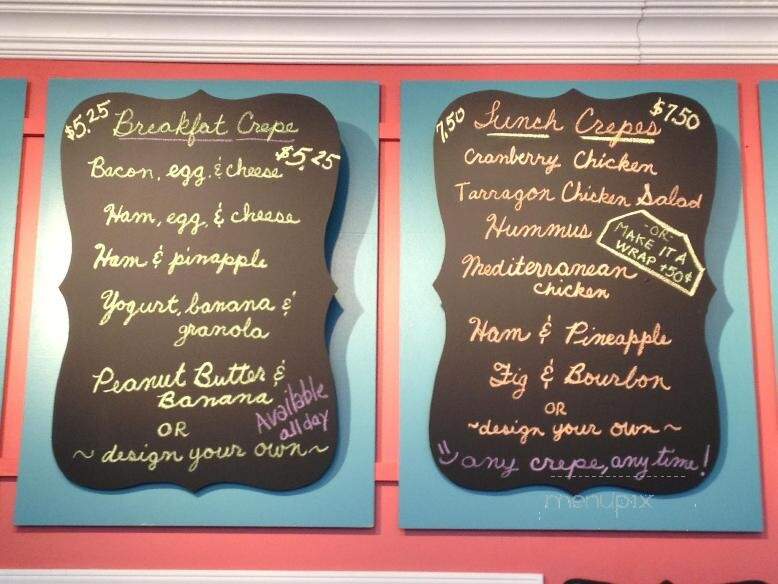 $5.25 Breakfat Crepe
$5.25
Bacon, egg, & cheese
Ham, egg, & cheese
Ham & pinapple
Yogurt, banana &
granola
Peanut Butter &
Banana
Available
all day
OR
~ design your own ~
7.50 Lunch Crepes $7.50
Cranberry Chicken
Tarragon Chicken Salad
Hummus
-OR-
MAKE IT A
WRAP +50¢
Mediterranean
chicken
Ham & Pineapple
Fig & Bourbon
OR
~design your own~
any crepe, any time!
menupix